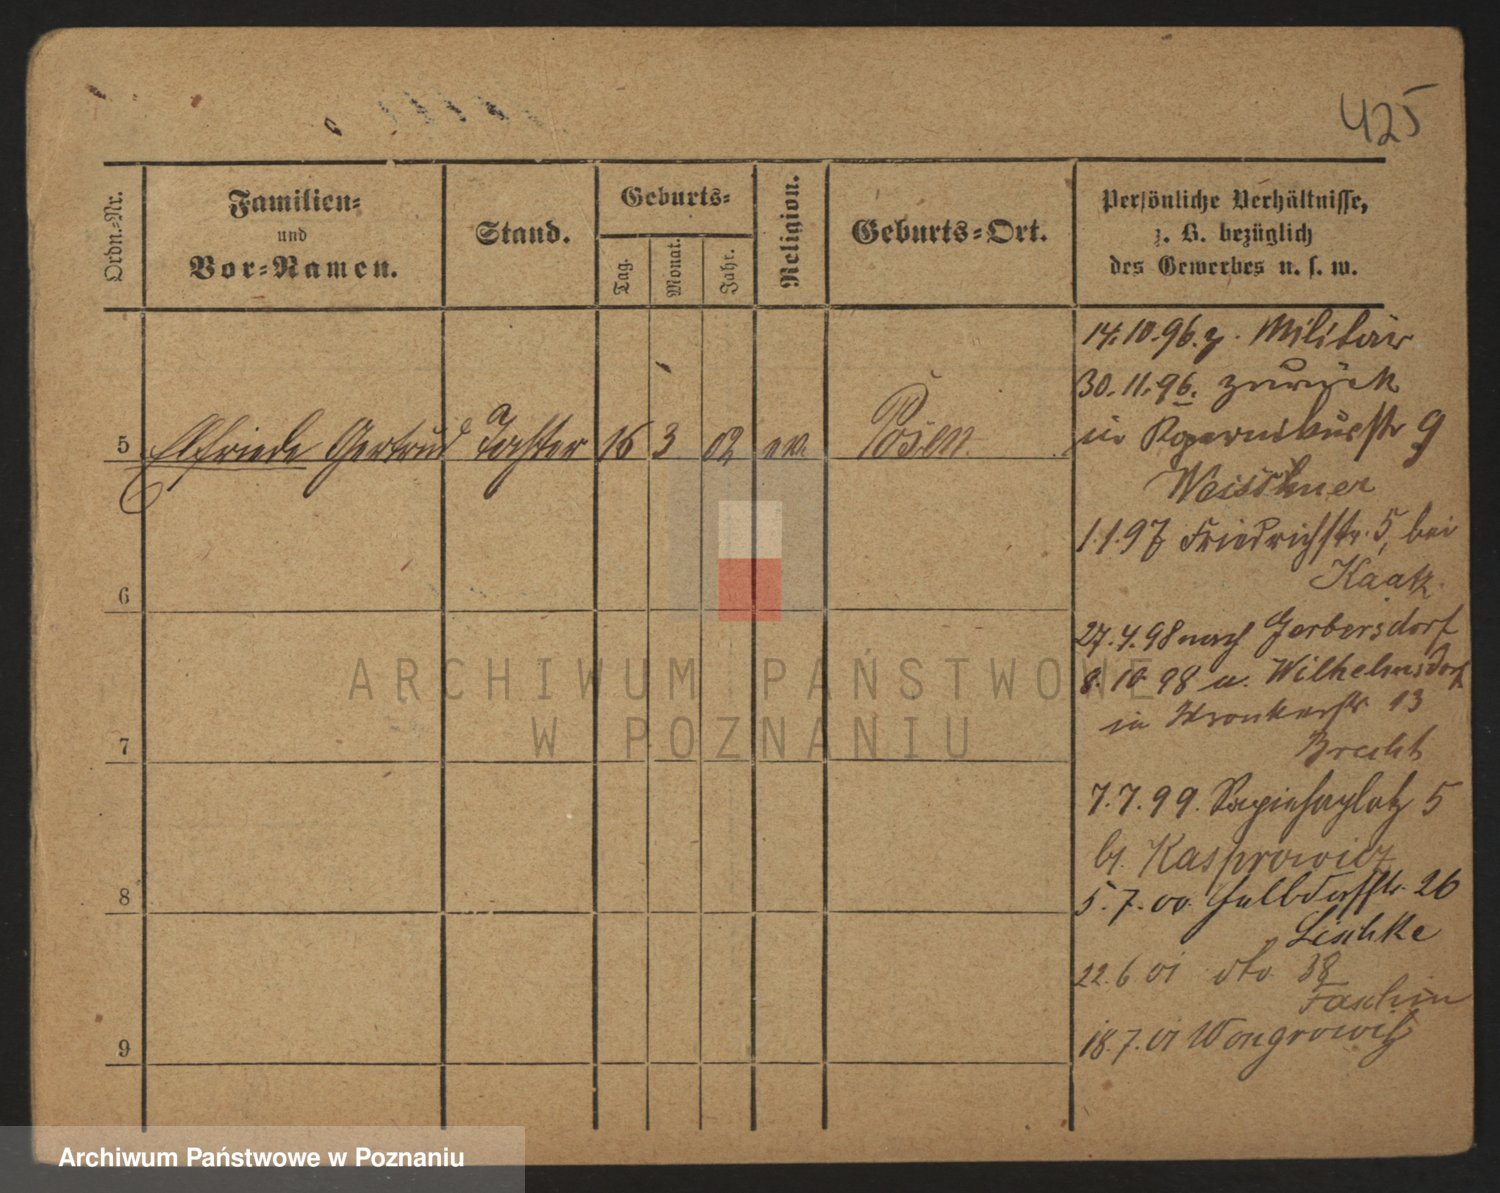 425
Ordn.-Nr.
Familien-
und
Vor-Namen.
Stand.
Geburts-
Tag.
Monat.
Jahr.
Religion.
Geburts-Ort.
Persönliche Verhältnisse,
z. B. bezüglich
des Gewerbes u. s. w.
14.10.96. z. Militär
30.11.96. zurück
in Kopernikusstr 9
5 Elfriede Gertrud Tochter 16 3 02 ev. Posen
1.1.97 Friedrichstr. 5, bei
Kaatz.
6
27.4.98 nach Gerbersdorf
8.10.98 a. Wilhelmsdorf
in Kronkerstr 13
Brecht
7
7.7.99. Sapiehaplatz 5
b/. Kasprowicz
5.7.00. Halbdorfstr. 26
Lischke
8
22.6.01 dto. 38
Faschin
18.7.01 Wongrowitz
9
ARCHIWUM PAŃSTWOWE
W POZNANIU
Archiwum Państwowe w Poznaniu